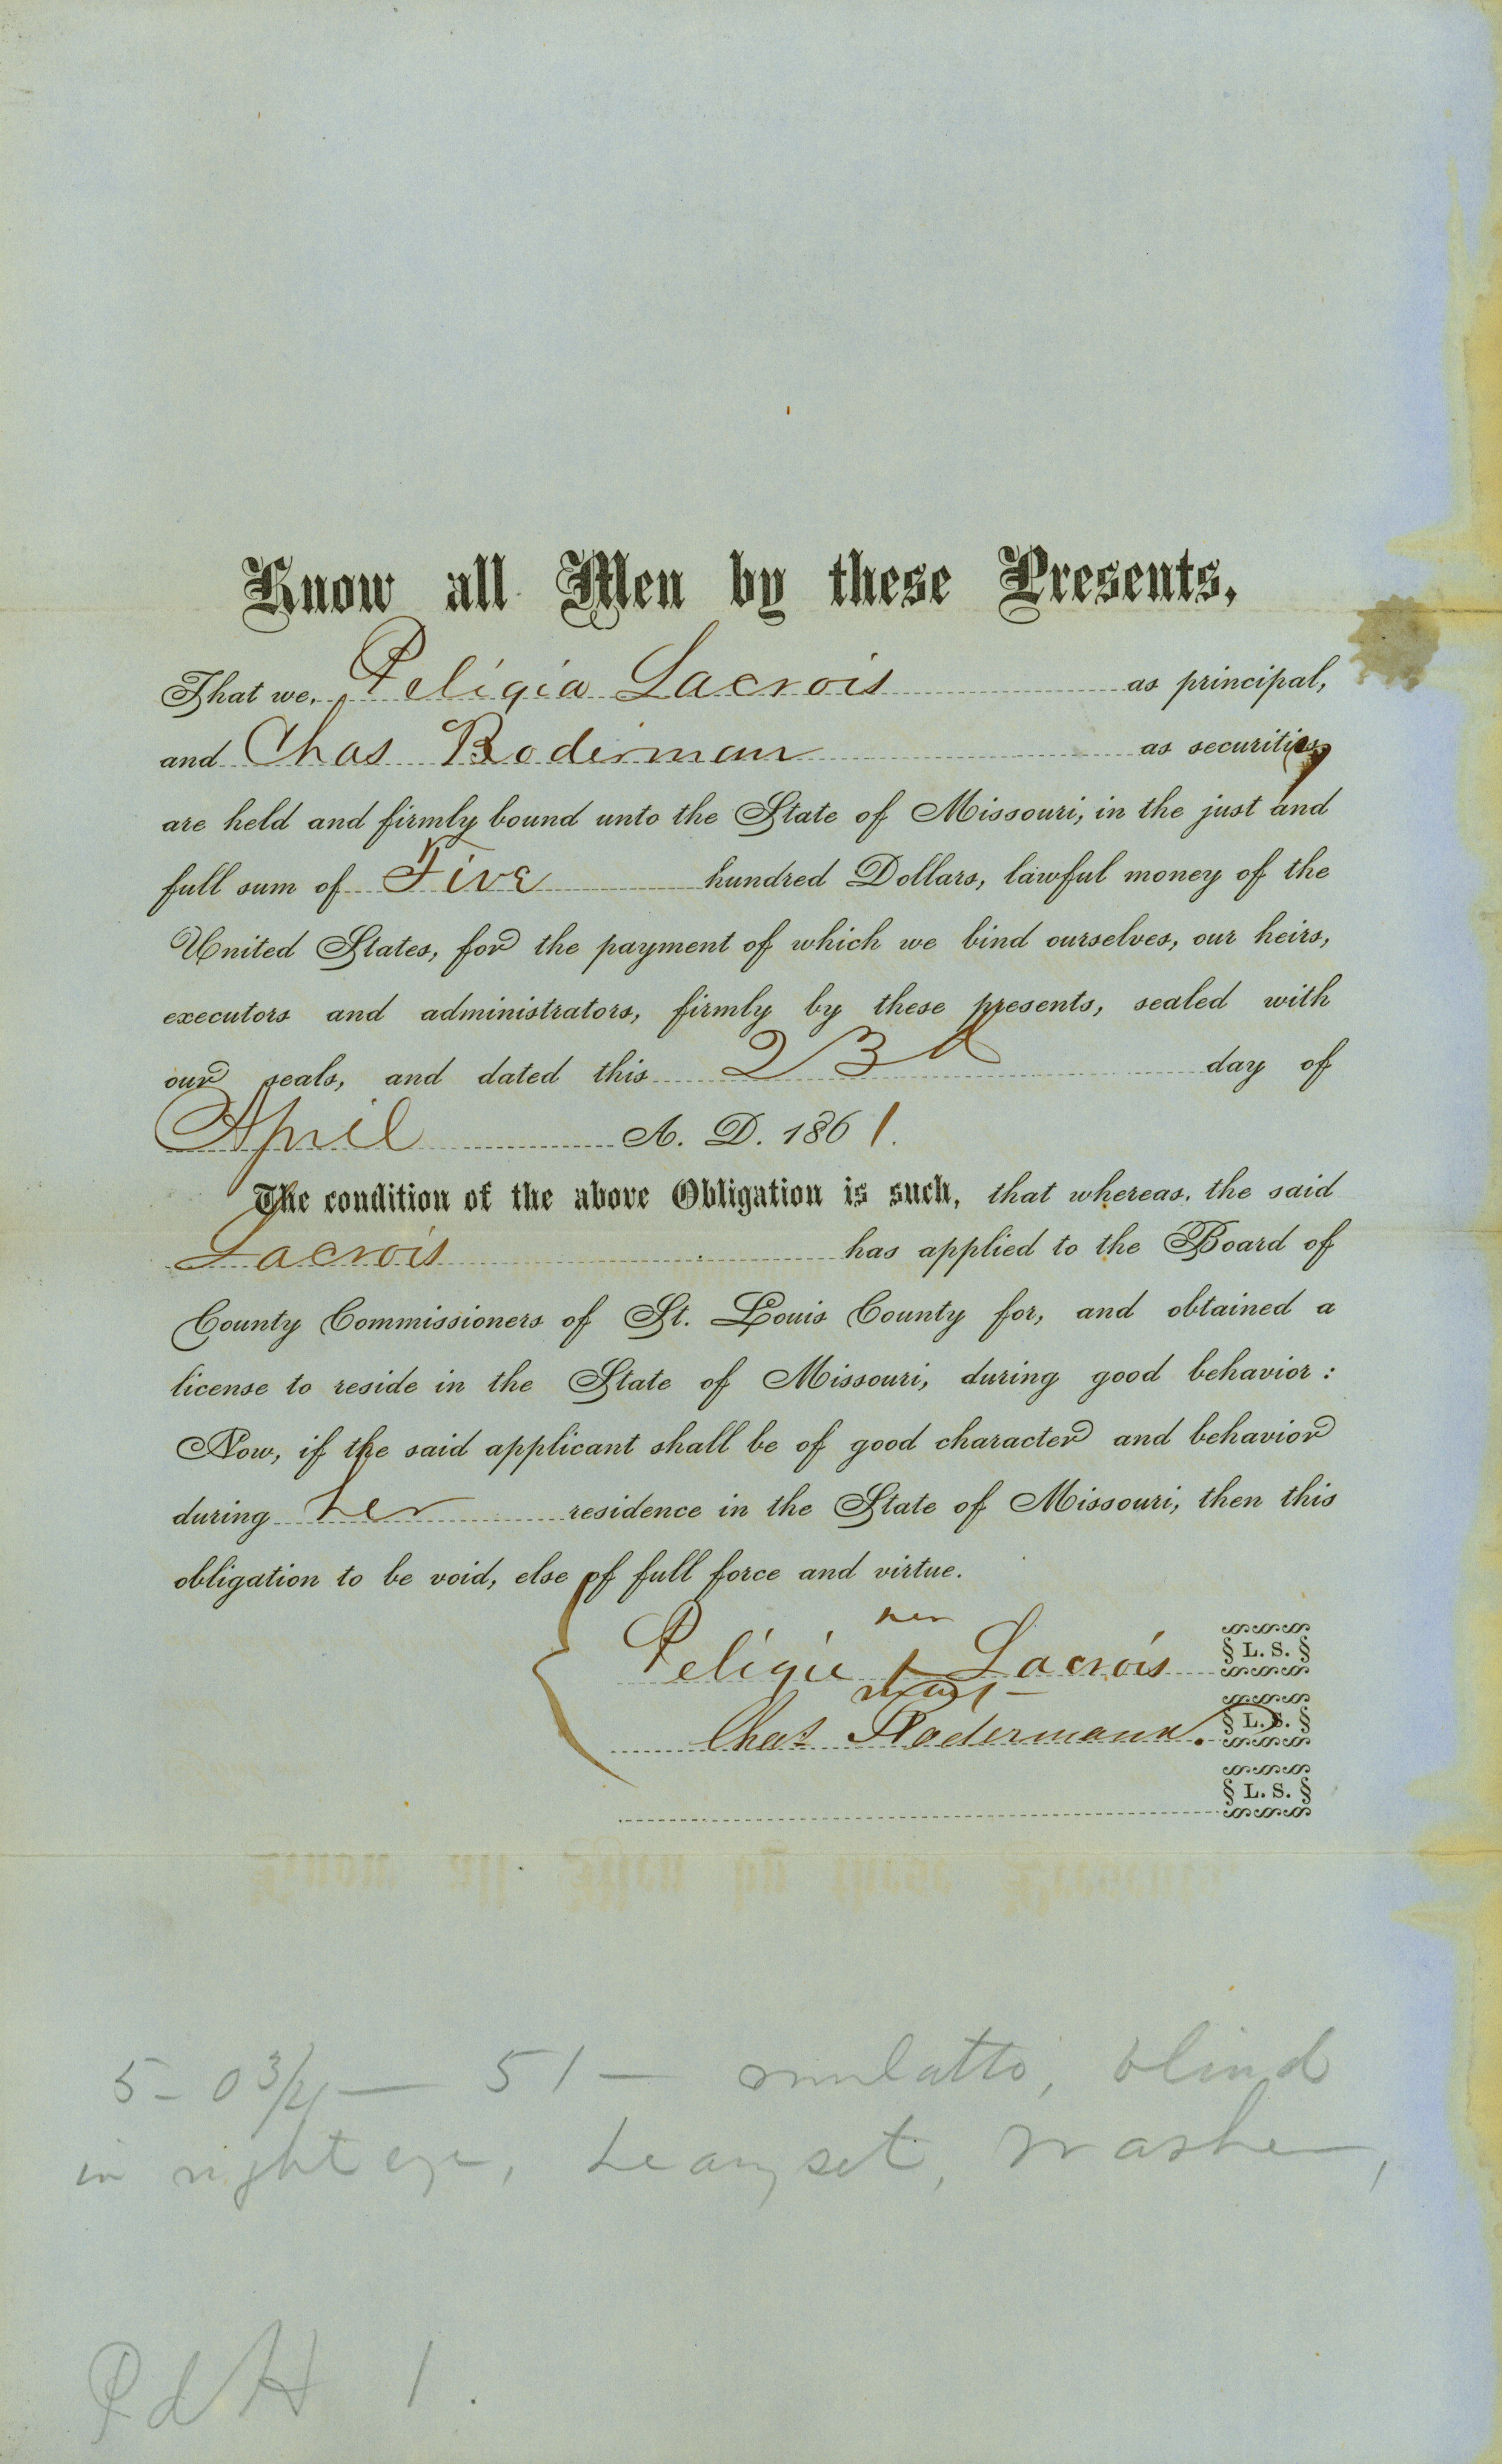 Know all Men by these Presents,
That we, Peligia Lacrois as principal,
and Chas Roderman as security
are held and firmly bound unto the State of Missouri, in the just and
full sum of Five hundred Dollars, lawful money of the
United States, for the payment of which we bind ourselves, our heirs,
executors and administrators, firmly by these presents, sealed with
our seals, and dated this 23d day of
April A. D. 1861.
The condition of the above Obligation is such, that whereas, the said
Lacrois has applied to the Board of
County Commissioners of St. Louis County for, and obtained a
license to reside in the State of Missouri, during good behavior :
Now, if the said applicant shall be of good character and behavior
during her residence in the State of Missouri, then this
obligation to be void, else of full force and virtue.
her
Peligie + Lacrois L. S.
mark
Chas Rodermann. L. S.
L. S.
5- 0 3/4 — 51 — mulatto, blind
in right eye, heavy set, washer,
Pd H 1.